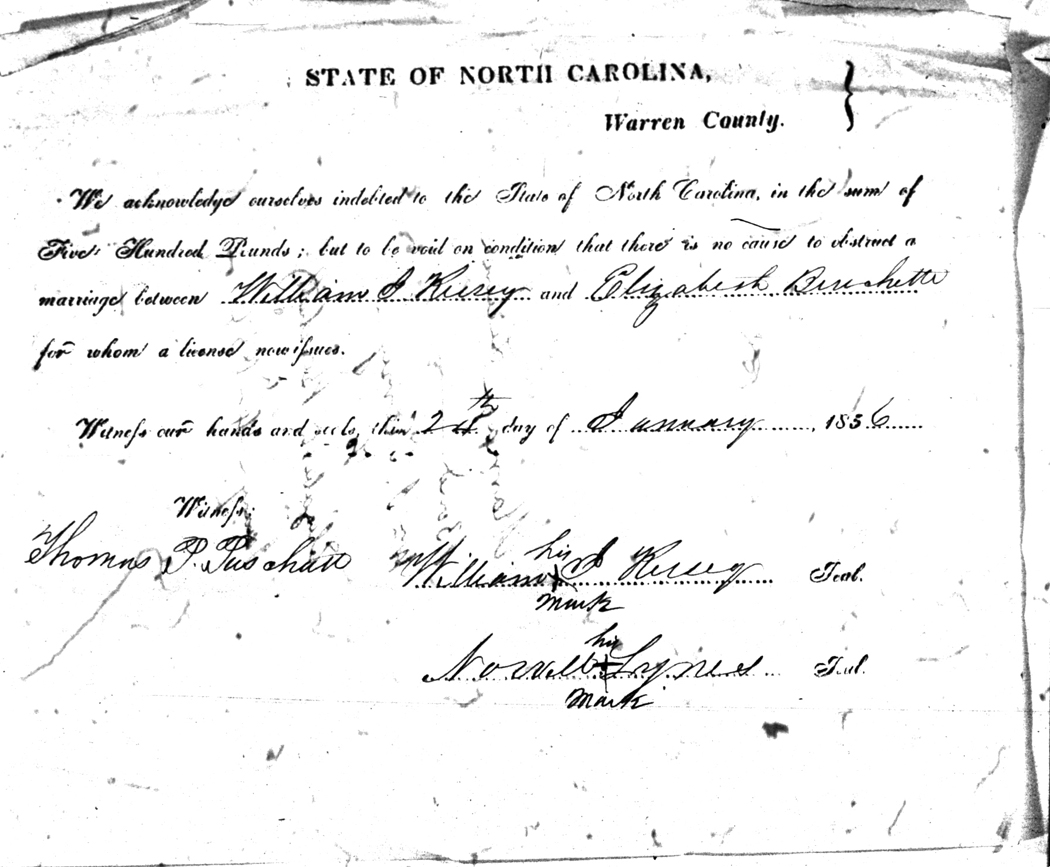 STATE OF NORTH CAROLINA,
Warren County.
We acknowledge ourselves indebted to the State of North Carolina, in the sum of
Five Hundred Pounds; but to be void on condition that there is no cause to obstruct a
marriage between William J Kersey and Elizabeth Burchette
for whom a license now issues.
Witness our hands and seals, this day of January, 1836
Witness:
Thomas P. Paschall
his
William J Kersey Seal.
mark
his
Norvell Lynes Seal.
mark